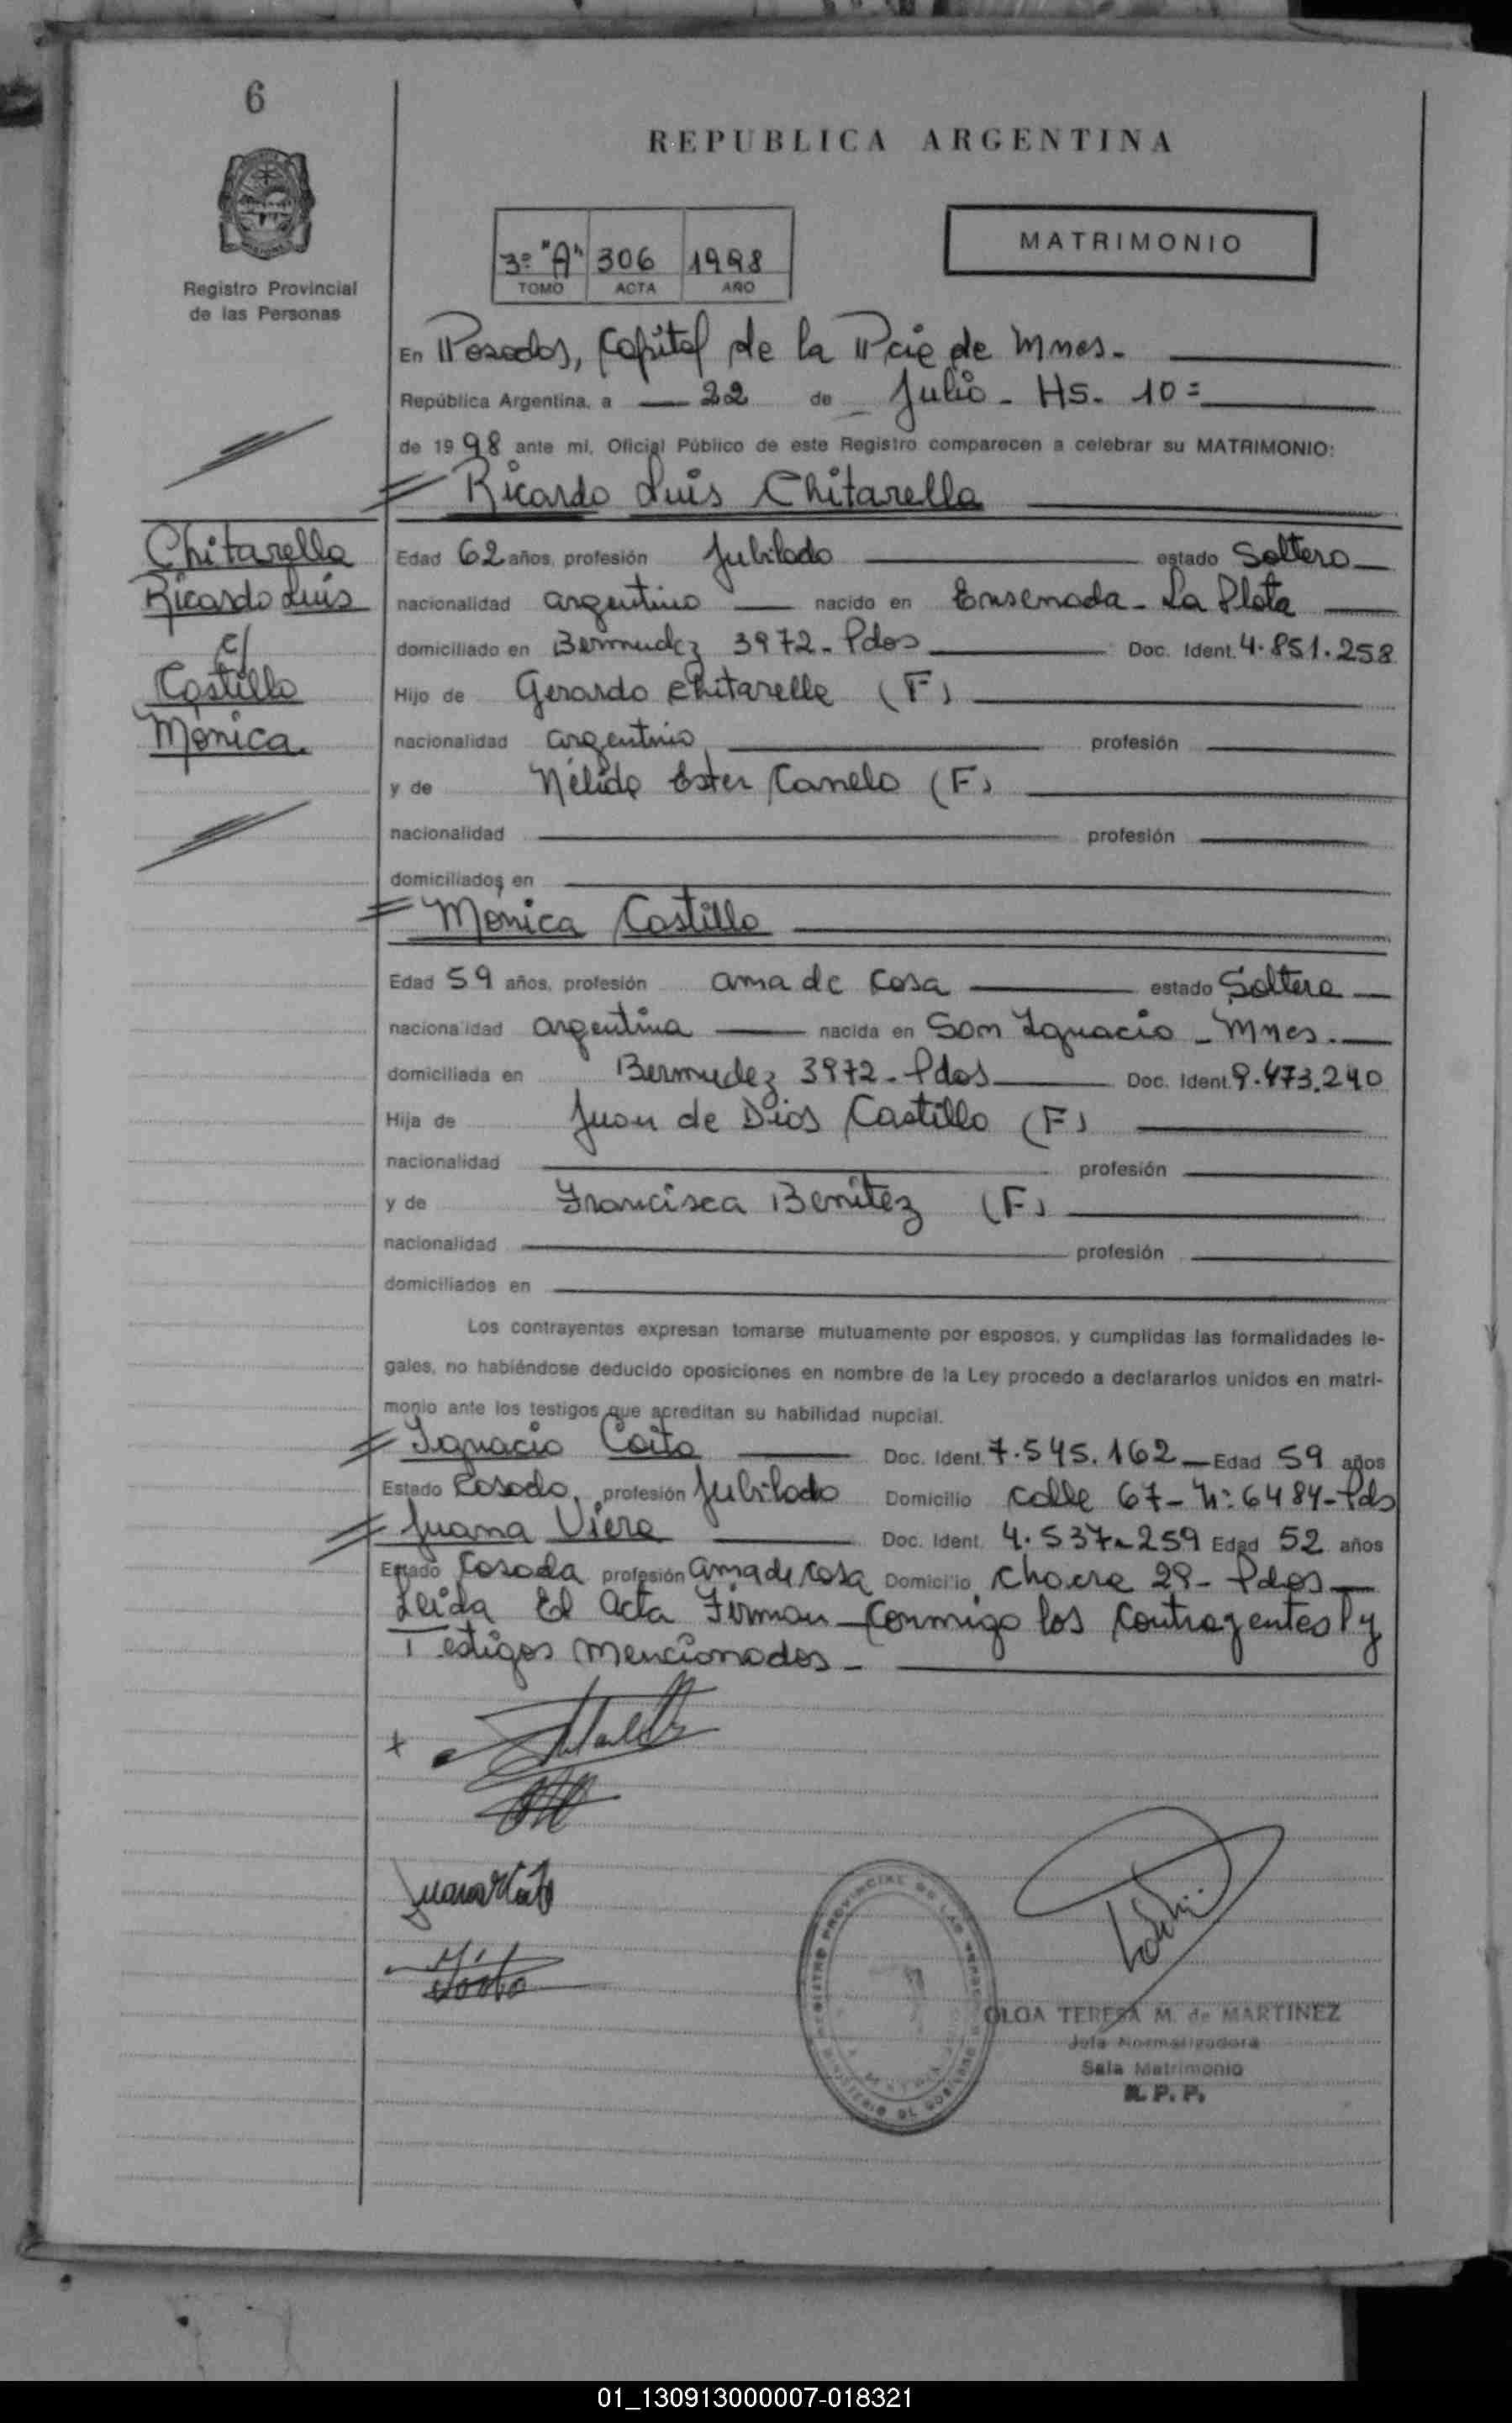 6
REPUBLICA ARGENTINA
MATRIMONIO
3º "A" 306 1998
TOMO ACTA AÑO
Registro Provincial
de las Personas
En Posadas, Capital de la Pcia de Mnes.
República Argentina, a 22 de Julio - Hs. 10=
de 1998 ante mi, Oficial Público de este Registro comparecen a celebrar su MATRIMONIO:
Ricardo Luis Chitarella
Chitarella
Ricardo Luis
c/
Castillo
Mónica.
Edad 62 años, profesión Jubilado estado Soltero
nacionalidad argentino nacido en Ensenada - La Plata
domiciliado en Bermudez 3972 - Pdas Doc. Ident. 4.851.258
Hijo de Gerardo Chitarella (F)
nacionalidad argentino profesión
y de Nélida Ester Canelo (F)
nacionalidad profesión
domiciliados en
Mónica Castillo
Edad 59 años, profesión ama de casa estado Soltera
nacionalidad argentina nacida en San Ignacio - Mnes.
domiciliada en Bermudez 3972 - Pdas Doc. Ident. 9.473.240
Hija de Juan de Dios Castillo (F)
nacionalidad profesión
y de Francisca Benitez (F)
nacionalidad profesión
domiciliados en
Los contrayentes expresan tomarse mutuamente por esposos, y cumplidas las formalidades le-
gales, no habiéndose deducido oposiciones en nombre de la Ley procedo a declararlos unidos en matri-
monio ante los testigos que acreditan su habilidad nupcial.
Ignacio Coito Doc. Ident. 7.545.162 Edad 59 años
Estado Casado, profesión Jubilado Domicilio calle 67 - Nº: 6484 - Pds
Juana Viera Doc. Ident. 4.537.259 Edad 52 años
Estado Casada profesión ama de casa Domicilio Chacra 29 - Pdas
Leida El acta Firman conmigo los contrayentes y
Testigos mencionados -
OLGA TERESA M. de MARTINEZ
Jefa Normalizadora
Sala Matrimonio
R. P. P.
01_130913000007-018321